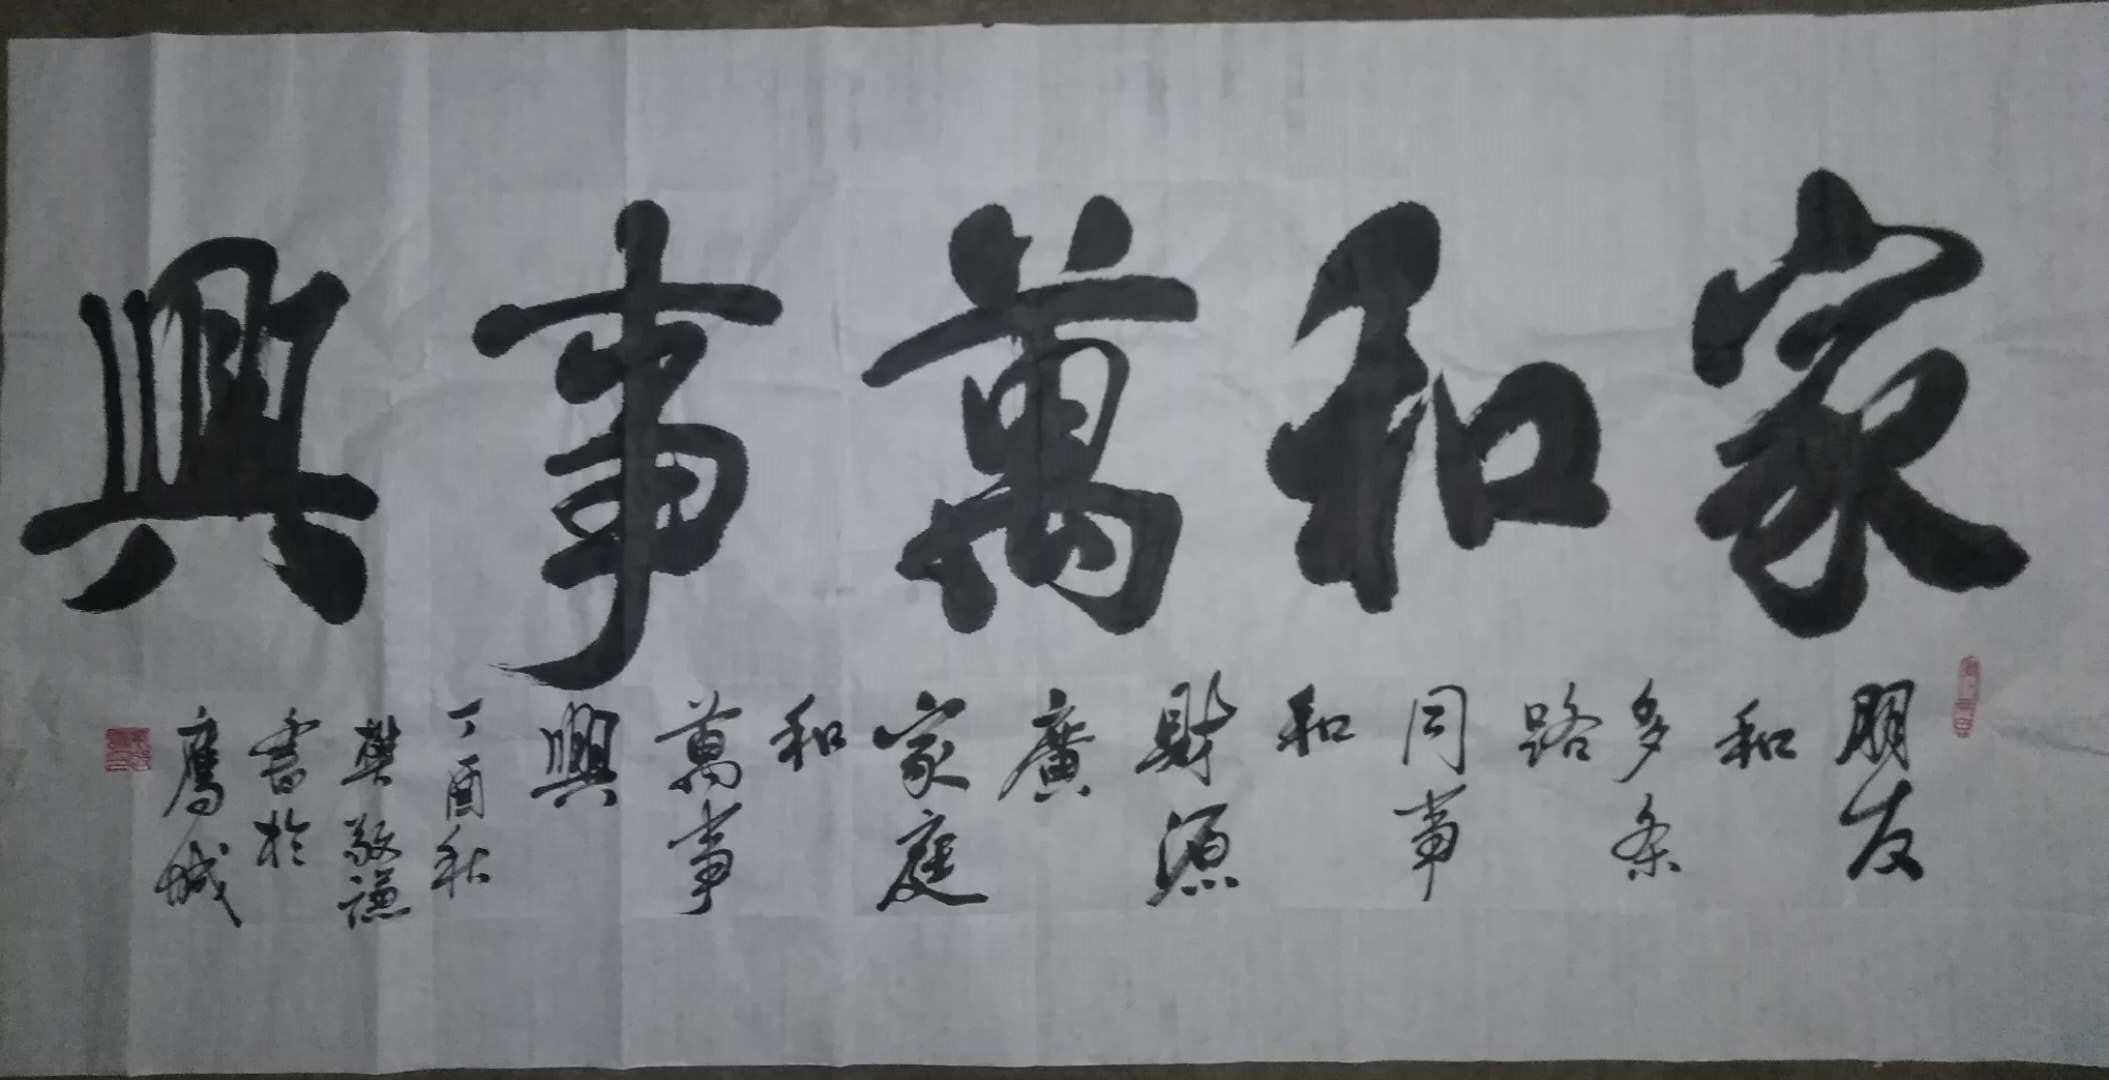 家和萬事興
朋友
和
多条
路
同事
和
財源
廣
家庭
和
萬事
興
丁酉秋
樊敬謙
書於
鹰城